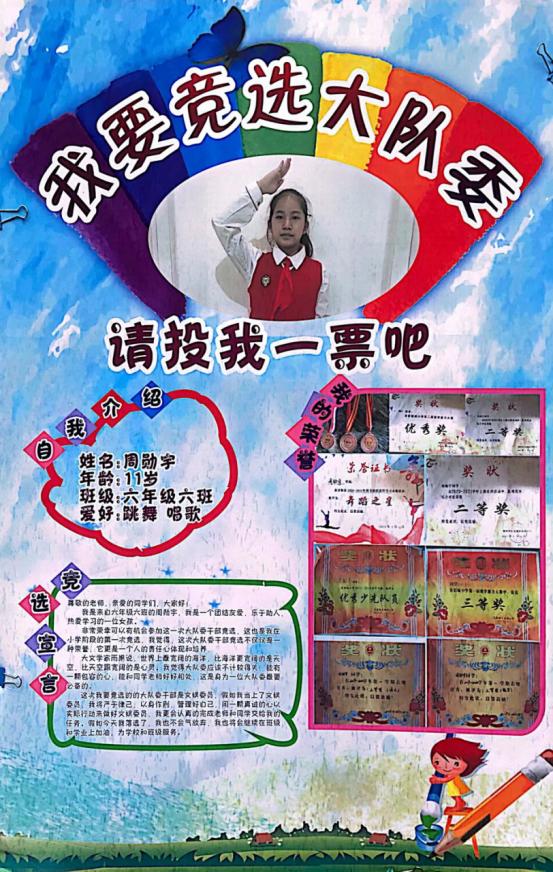 我要竞选大队委
请投我一票吧
自我介绍
姓名:周勋宇
年龄:11岁
班级:六年级六班
爱好:跳舞 唱歌
竞选宣言
尊敬的老师、亲爱的同学们,大家好!
我是来自六年级六班的周勋宇,我是一个团结友爱、乐于助人、
热爱学习的一位女孩。
非常荣幸可以有机会参加这一次大队委干部竞选,这也是我在
小学阶段的第一次竞选。我觉得,这次大队委干部竞选不仅仅是一
种荣誉,它更是一个人的责任心体现和培养。
大文学家雨果说,世界上最宽阔的海洋,比海洋更宽阔的是天
空,比天空跟宽阔的是心灵,我觉得大队委应该不计较得失,能有
一颗包容的心,能和同学老师好好相处,这是身为一位大队委最要
必备的。
这次我要竞选的的大队委干部是文娱委员,假如我当上了文娱
委员,我将严于律己,以身作则,管理好自己,用一颗真诚的心以
实际行动来做好文娱委员,我更会认真的完成老师和同学交给我的
任务,假如今天我落选了,我也不会气馁弃,我也将会继续在班级
和学业上加油,为学校和班级服务。
我的荣誉
奖状
优秀奖
奖状
二等奖
荣誉证书
舞蹈之星
奖状
二等奖
奖状
优秀少先队员
奖状
三等奖
奖状
奖状